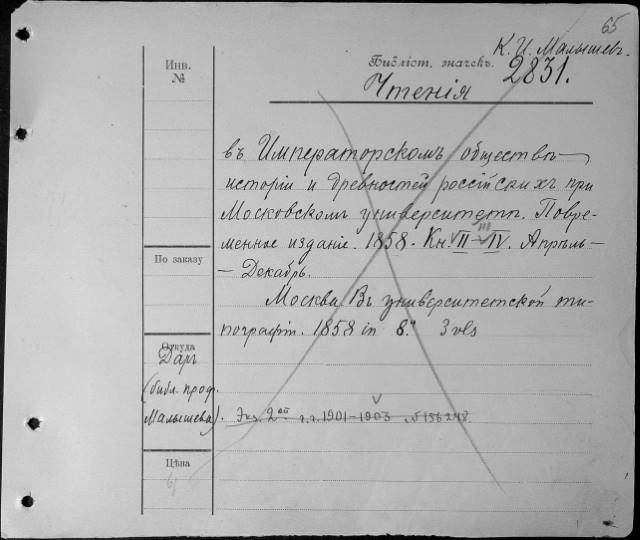 65
К. И. Малышевъ.
Библіот. значекъ.
2831.
Инв.
№
Чтенія
въ Императорскомъ обществѣ
исторіи и древностей россійскихъ при
Московскомъ университетѣ. Повре-
менное изданіе. 1858. Кн. II–IV. Апрѣль–
III
– Декабрь.
По заказу
Москва. Въ университетской ти-
пографіи. 1858 in 8.° 3 vls
Откуда
Даръ
(библ. проф.
Малышева).
Экз. 2ой г.г. 1901–1903 № 156248.
Цѣна